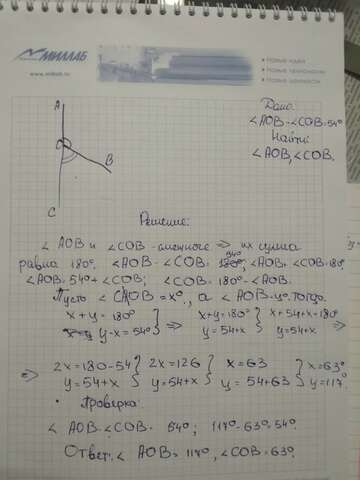 МИЛЛАБ
www.millab.ru
• Новые идеи
• Новые технологии
• Новые ценности
A
O
B
C
Дано:
∠AOB-∠COB=54°
Найти:
∠AOB, ∠COB.
Решение:
∠ AOB и ∠COB - смежные ⇒ их сумма
равна 180°. ∠AOB - ∠COB= 54°, ∠AOB+ ∠COB=180°
∠AOB= 54°+∠COB; ∠COB = 180°-∠AOB.
Пусть ∠COB = x°, а ∠AOB=y°, тогда:
x+y=180° } ⇒ x+y=180° } x+54+x=180°
y-x=54° } y=54+x } y=54+x } ⇒
⇒ 2x=180-54 } 2x=126 } x=63 } x=63°
y=54+x } y=54+x } y=54+63 } y=117°
• Проверка:
∠ AOB-∠COB= 54°; 117°-63°=54°.
Ответ: ∠ AOB= 117°, ∠COB=63°.